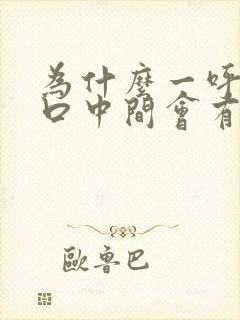 為什麼一呼
口中間會有
歐魯巴